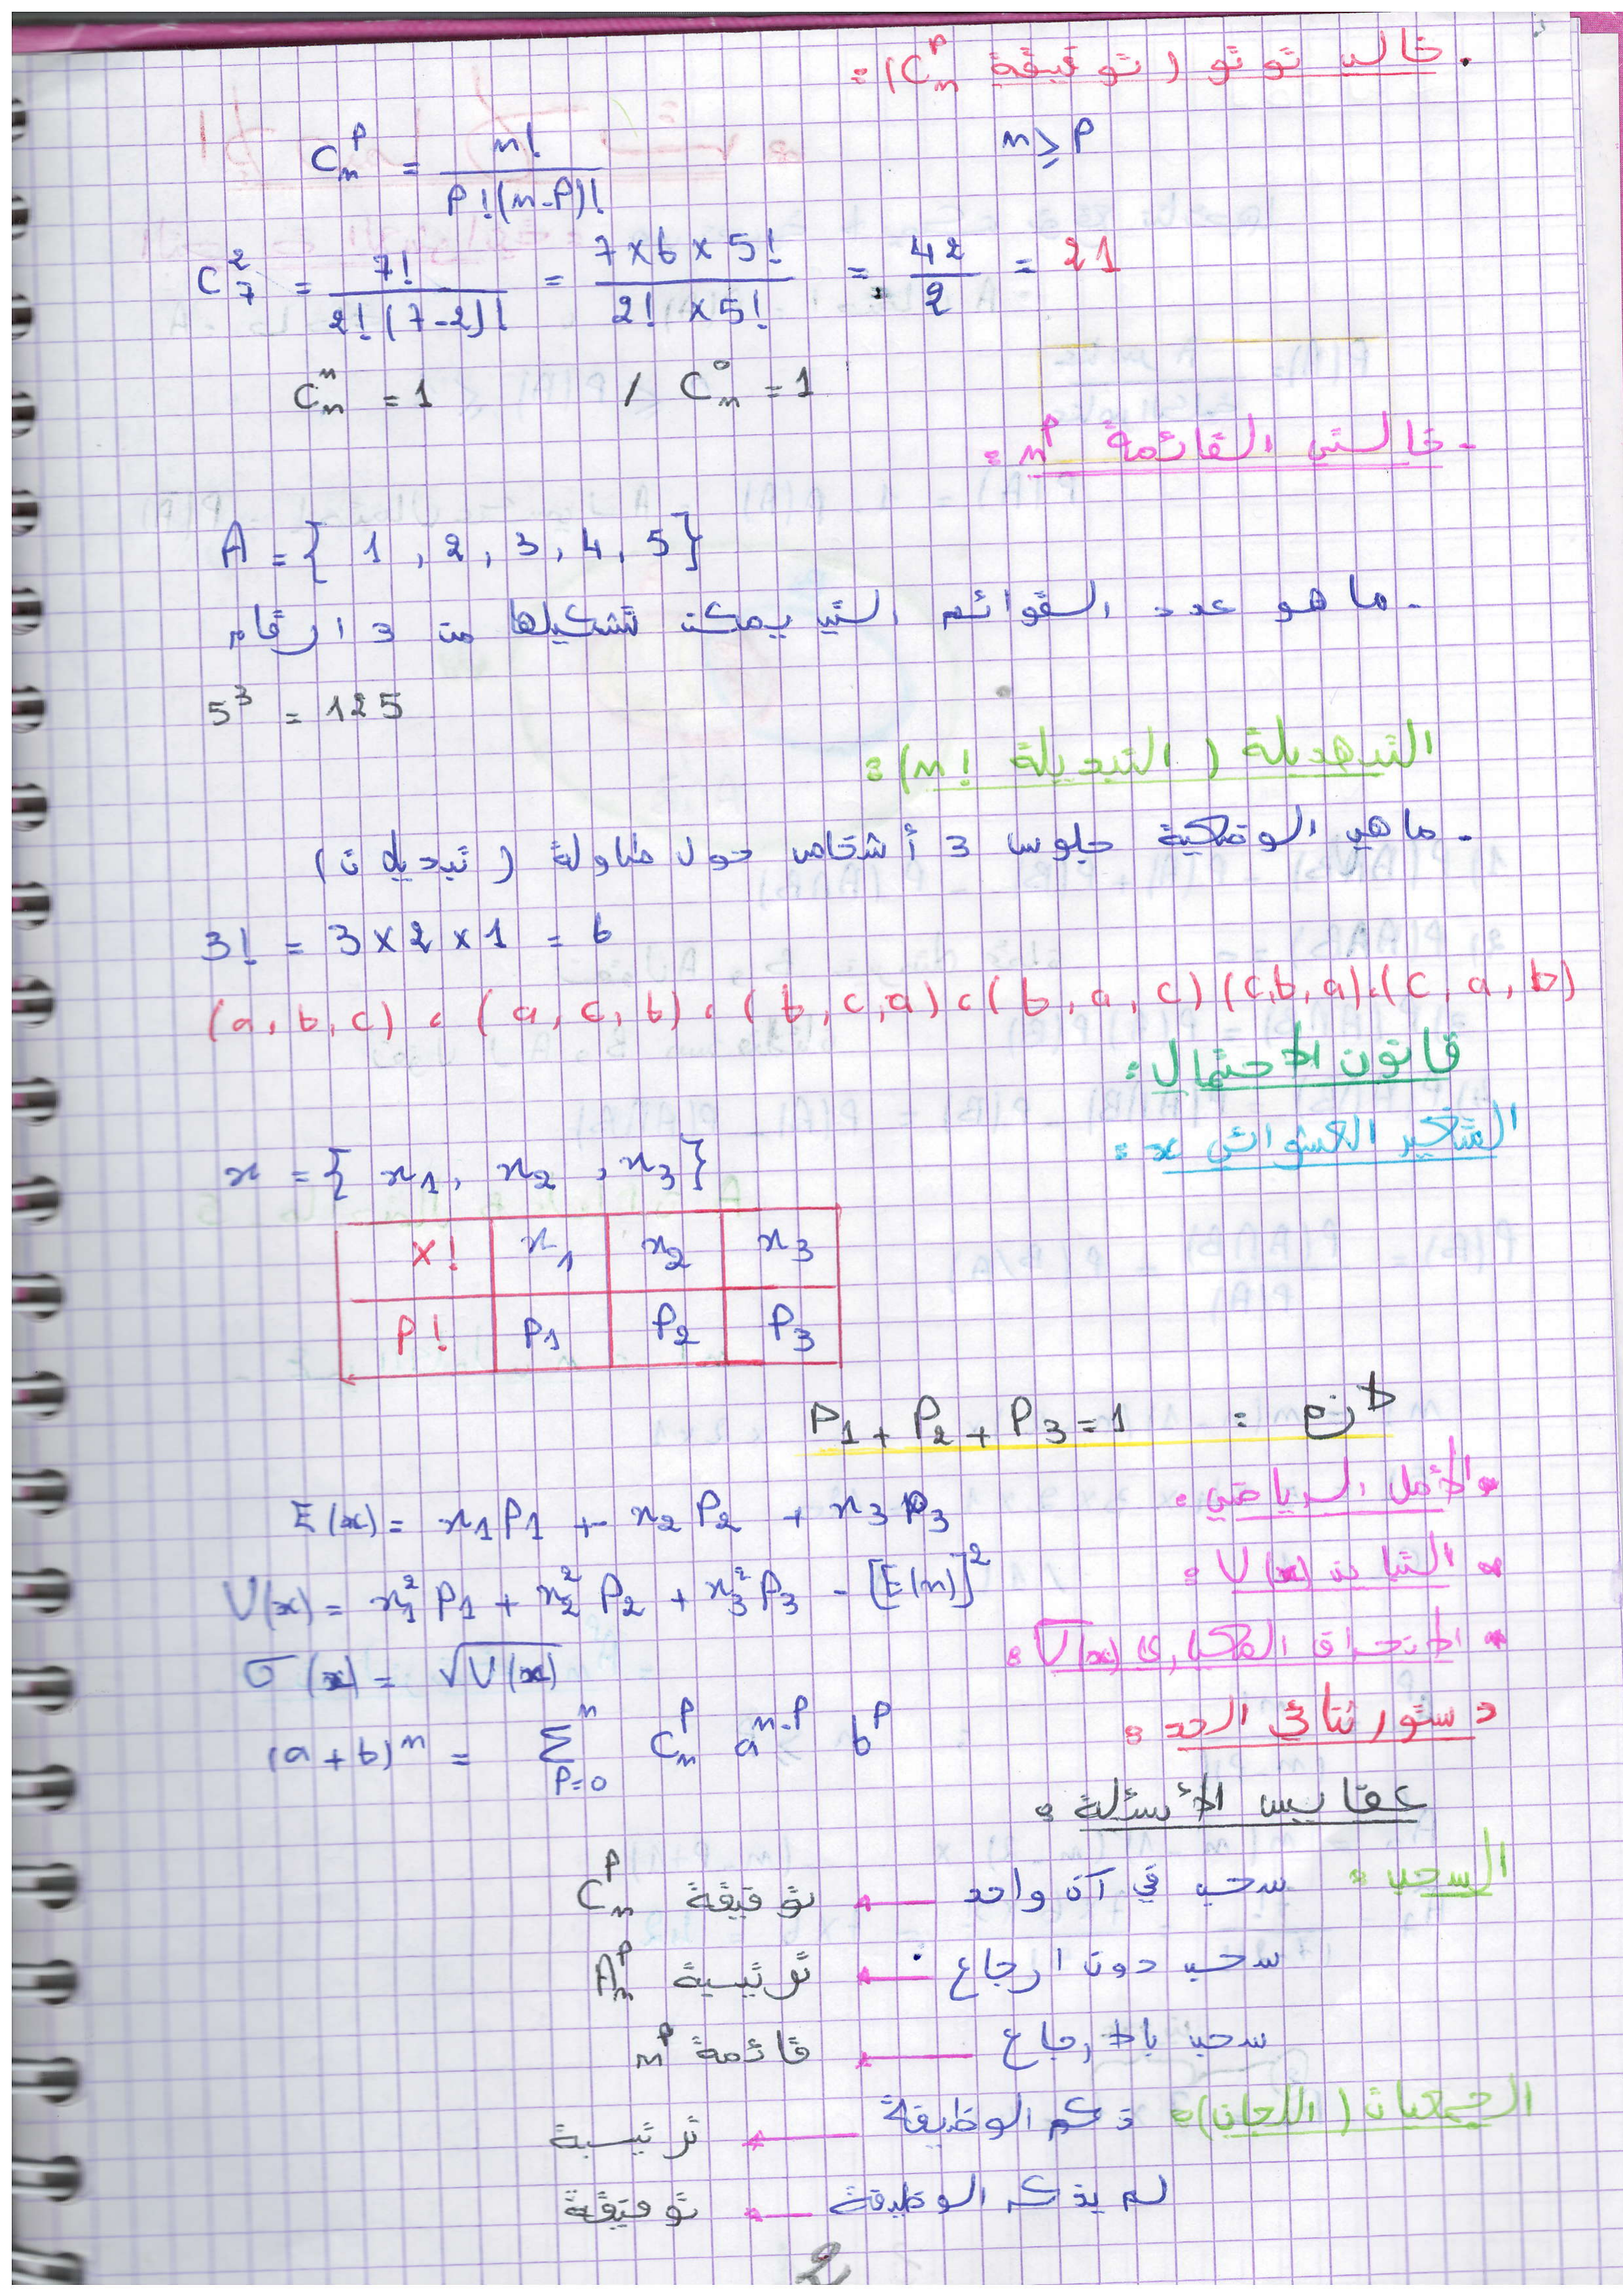 . خالد توتو ( توفيقة C_n^P ) :
C_n^P = n! / P!(n-P)!    n ≥ P
C_7^2 = 7! / 2!(7-2)! = 7×6×5! / 2!×5! = 42/2 = 21
C_n^n = 1 / C_n^0 = 1
- خالتي القائمة n^P :
A = { 1 , 2 , 3 , 4 , 5 }
- ما هو عدد القوائم التي يمكن تشكيلها من 3 ارقام
5^3 = 125
التبهديلة ( التبديلة n! ) :
- ما هي الوضعية جلوس 3 أشخاص حول طاولة ( تبديلات )
3! = 3 × 2 × 1 = 6
(a, b, c) ، (a, c, b) ، (b, c, a) ، (b, a, c) (c, b, a) ، (c, a, b)
قانون الاحتمال :
المتغير العشوائي x :
x = { x1, x2 , x3 }
X! x1 x2 x3
P! P1 P2 P3
لازم : P1 + P2 + P3 = 1
• الأمل الرياضي :
E(x) = x1P1 + x2P2 + x3P3
• التباين V(x) :
V(x) = x1^2 P1 + x2^2 P2 + x3^2 P3 - [E(x)]^2
• الانحراف المعياري √V(x) :
σ(x) = √V(x)
دستور ثنائي الحد :
(a+b)^n = Σ_{P=0}^{n} C_n^P a^{n-P} b^P
عفايس الأسئلة :
السحب : سحب في آن واحد ← توفيقة C_n^P
سحب دون ارجاع ← ترتيبة A_n^P
سحب بالارجاع ← قائمة n^P
الجمعيات ( اللجان ) : ذكر الوظيفة ← ترتيبة
لم يذكر الوظيفة ← توفيقة
2